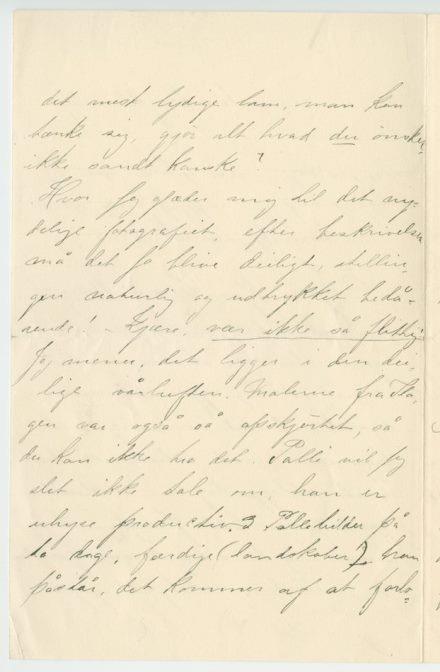 det mest lydige lam, man kan
tænke sig, gjør alt hvad du ønsker,
ikke sandt kanske?
Hvor jeg glæder mig til det ny-
delige fotografiet, efter beskrivelsen
må det jo blive deiligt, stillin-
gen naturlig og udtrykket bedå-
rende! - Kjære, vær ikke så flittig
Jeg mener, det ligger i den dei-
lige vårluften. Malerne fra
gen var også så opskjørtet, så
du kan ikke tro det. Palli vil jeg
slet ikke tale om, han er
uhyre productiv. 3 Pallebilder på
to dage, færdige (landskaber), han
påstår, det kommer af at forlo-